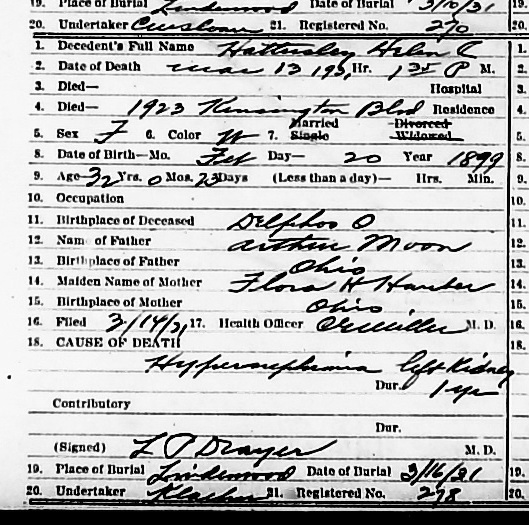 19. Place of Burial Lindenwood Date of Burial 3/10/31
20. Undertaker 21. Registered No. 270
1. Decedent's Full Name Hattersley Helen C
2. Date of Death Mar 13 1931 Hr. 1 35 P M.
3. Died— Hospital
4. Died— 1923 Kensington Blvd Residence
5. Sex F 6. Color W 7. Married Single Divorced Widowed
8. Date of Birth—Mo. Feb Day— 20 Year 1899
9. Age 32 Yrs. 0 Mos. 23 Days (Less than a day)— Hrs. Min.
10. Occupation
11. Birthplace of Deceased Delphos O
12. Name of Father Arthur Moon
13. Birthplace of Father Ohio
14. Maiden Name of Mother Flora H
15. Birthplace of Mother Ohio
16. Filed 3/14/31 17. Health Officer Miller M. D.
18. CAUSE OF DEATH
Hypernephroma left Kidney
Dur. 1 yr
Contributory
Dur.
(Signed) L P Drayer M. D.
19. Place of Burial Lindenwood Date of Burial 3/16/31
20. Undertaker Klaehn 21. Registered No. 278